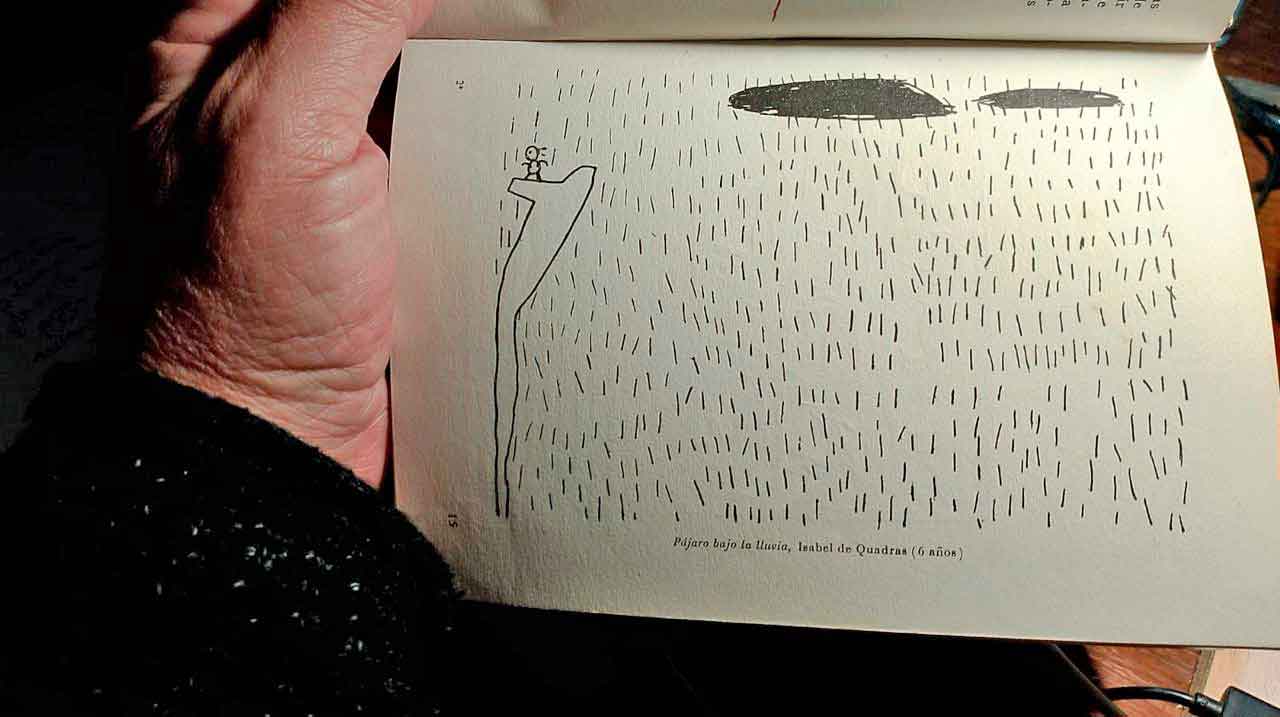 Pájaro bajo la lluvia, Isabel de Quadras (6 años)
15
2*